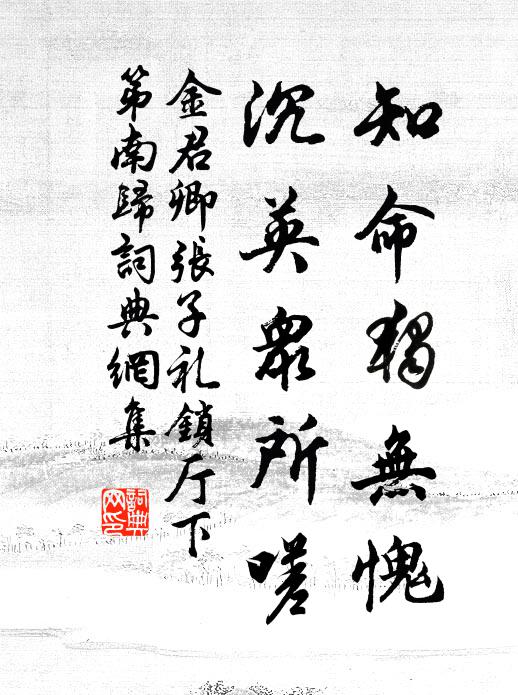 知命獨無愧
沉英衆所嗟
金君卿張子礼鎖厅下
第南歸詞典網集
詞典
网印